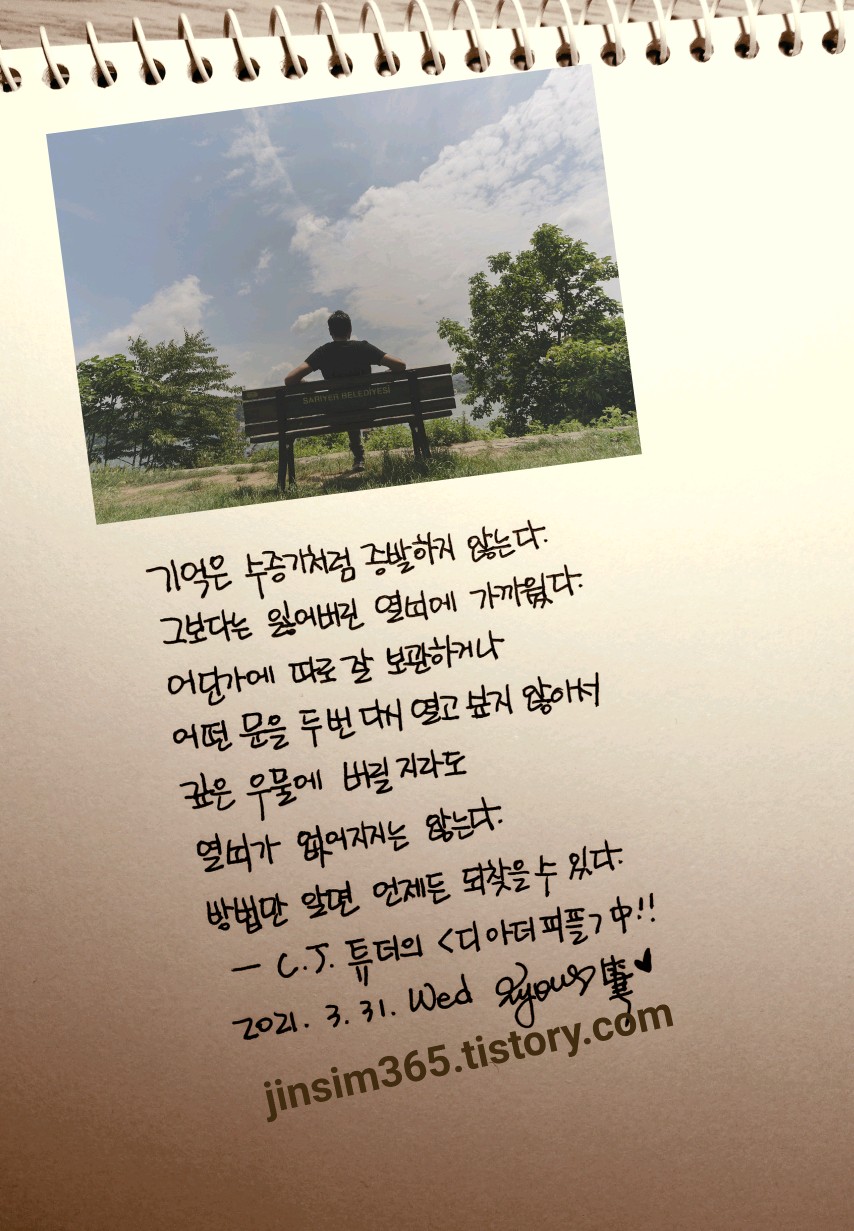 SARIYER BELEDİYESİ
기억은 수증기처럼 증발하지 않는다.
그보다는 잃어버린 열쇠에 가까웠다.
어딘가에 따로 잘 보관하거나
어떤 문을 두 번 다시 열고 싶지 않아서
깊은 우물에 버릴지라도
열쇠가 없어지지는 않는다.
방법만 알면 언제든 되찾을 수 있다.
- C.J. 튜더의 <디 아더 피플> 中!!
2021. 3. 31. Wed
jinsim365.tistory.com